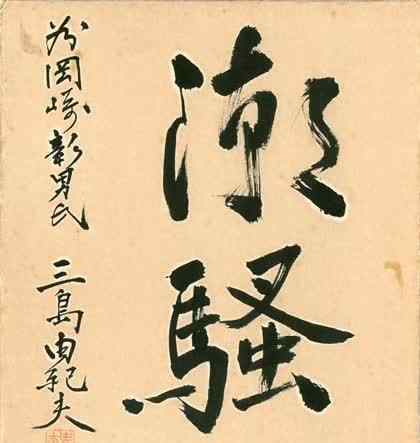 潮騒
為岡崎彰男氏
三島由紀夫